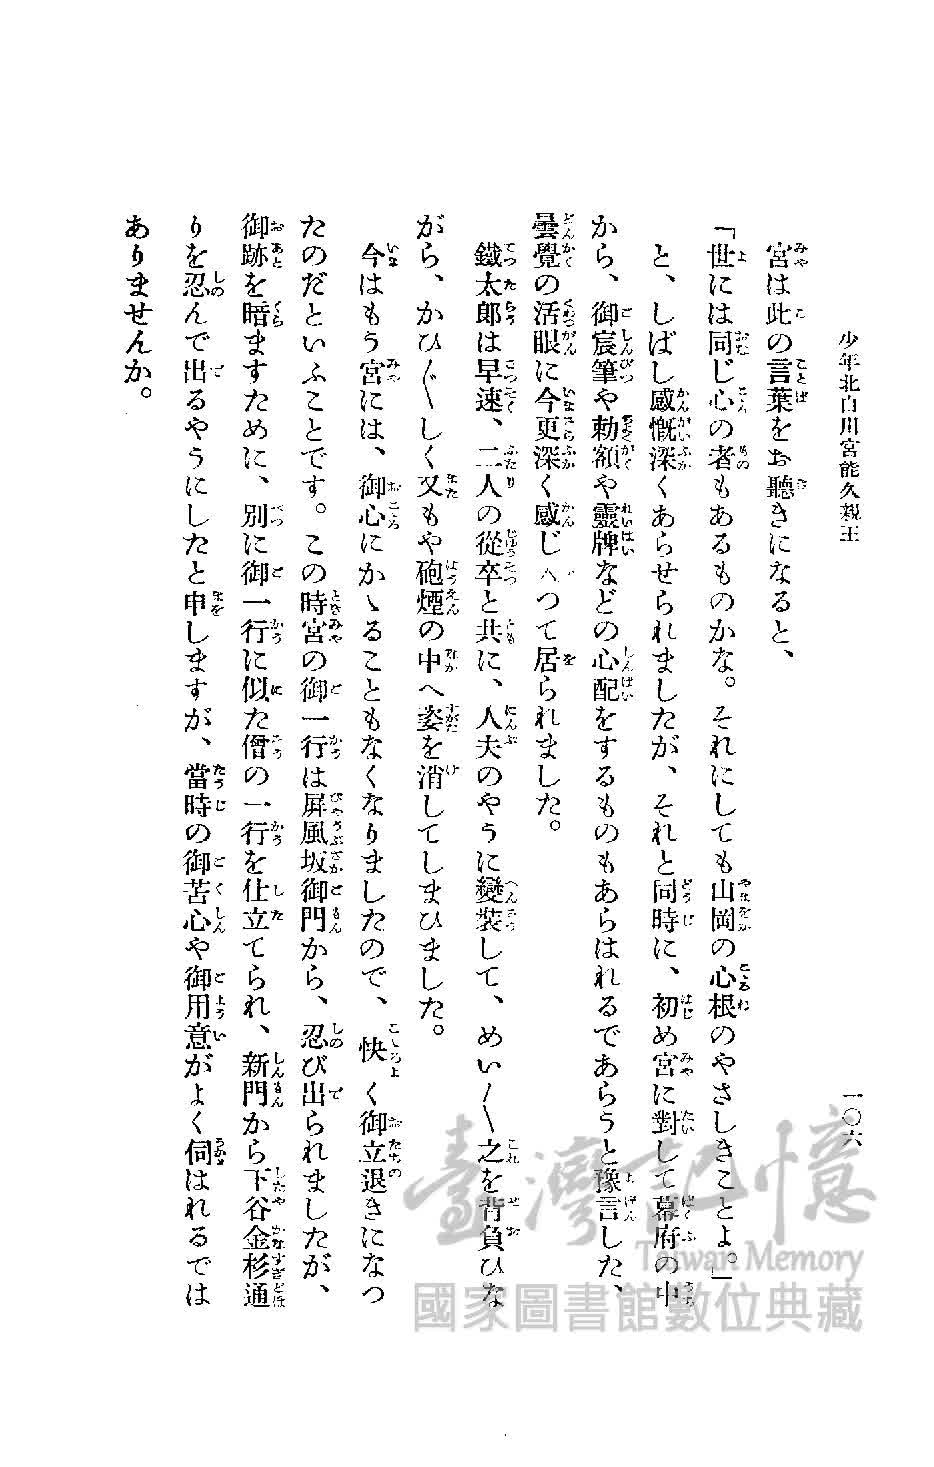 少年北白川宮能久親王
一〇六
宮は此の言葉をお聽きになると、
「世には同じ心の者もあるものかな。それにしても山岡の心根のやさしきことよ。」
と、しばし感慨深くあらせられましたが、それと同時に、初め宮に對して幕府の中
から、御宸筆や勅額や靈牌などの心配をするものもあらはれるであらうと豫言した、
曇覺の活眼に今更深く感じ入つて居られました。
鐵太郎は早速、二人の從卒と共に、人夫のやうに變裝して、めい〳〵之を背負ひな
がら、かひ〴〵しく又もや砲煙の中へ姿を消してしまひました。
今はもう宮には、御心にかゝることもなくなりましたので、快く御立退きになつ
たのだといふことです。この時宮の御一行は屏風坂御門から、忍び出られましたが、
御跡を暗ますために、別に御一行に似た僧の一行を仕立てられ、新門から下谷金杉通
りを忍んで出るやうにしたと申しますが、當時の御苦心や御用意がよく伺はれるでは
ありませんか。
臺灣記憶
Taiwan Memory
國家圖書館數位典藏